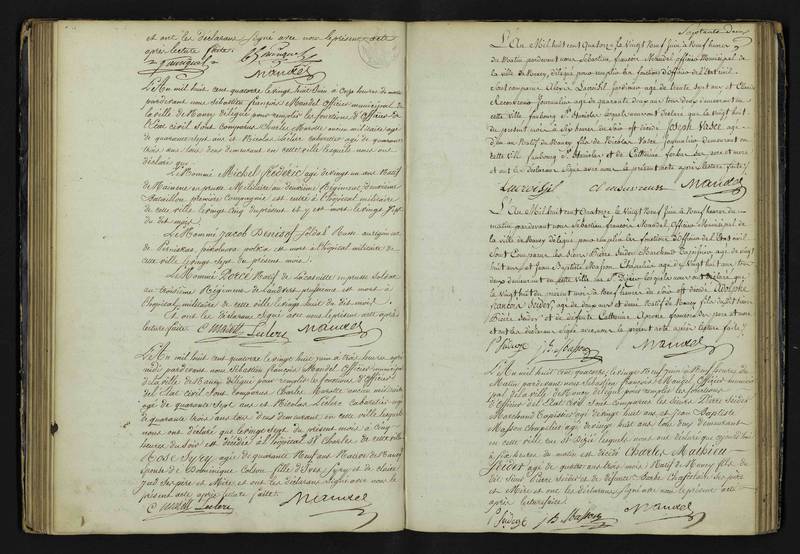 et ont les déclarans signé avec nous le présent acte
après lecture faite.
Mandel
L'An mil huit cent quatorze le vingt huit Juin à onze heures du matin
pardevant nous Sébastien françois Mandel Officier municipal de
la ville de Nancy délégué pour remplir les fonctions d'Officier de
l'Etat civil Sont comparus Charles Marotte ancien militaire agé
de quarante sept ans et Nicolas Leclerc cabaretier agé de quarante
trois ans tous deux demeurant en cette ville lesquels nous ont
déclaré que
Le Nommé Michel Frédéric agé de vingt un ans Natif
de en prusse Militaire au deuxième Régiment, deuxième
Bataillon, première Compagnie est entré à l'hôpital militaire
de cette ville le vingt cinq du présent et y est mort le vingt sept
du dit mois.
Le Nommé Jacob Denisof soldat Russe au régiment
de est mort à l'hôpital militaire de
cette ville le vingt sept du présent mois.
Le Nommé Natif de en prusse Soldat
au troisième Régiment de Landwer prussienne est mort à
l'hôpital militaire de cette ville le vingt huit du dit mois.
Et ont les déclarans Signé avec nous le présent acte après
lecture faite.
C Marotte Leclerc Mandel
L'An mil huit cent quatorze le vingt huit Juin à trois heures après
midi pardevant nous Sébastien françois Mandel Officier municipal
de la ville de Nancy délégué pour remplir les fonctions d'Officier
de l'Etat Civil Sont comparus Charles Marotte ancien militaire
agé de quarante Sept ans et Nicolas Leclerc Cabaretier agé
de quarante trois ans tous deux demeurant en cette ville lesquels
nous ont déclaré que le vingt sept du présent mois à cinq
heures du Soir est décédée à l'hôpital St Charles de cette ville
Rose Syry, agée de quarante Neuf ans Native de Nancy
Epouse de Dominique Colson fille d'Yves Syry et de claire
Jud Ses père et Mère et ont les déclarans Signé avec nous le
présent acte après lecture faite.
C Marotte Leclerc Mandel
Septante Deux
L'An Mil huit cent Quatorze le Vingt Neuf Juin à Neuf heures
du Matin pardevant nous Sébastien françois Mandel officier Municipal de
la ville de Nancy délégué pour remplir les fonctions d'officier de l'Etat civil
Sont comparus jardinier agé de trente sept ans et
Journalier agé de quarante deux ans tous deux demeurant en
cette ville faubourg St Stanislas lesquels nous ont déclaré que le vingt huit
du présent mois à dix heures du soir est décédé Joseph Vasce agé
d'un an Natif de Nancy fils de Nicolas Vasce Journalier demeurant en
cette ville faubourg St Stanislas et de Catherine ses père et mère
et ont les déclarans Signé avec nous le présent acte après lecture faite.
Mandel
L'An Mil huit cent Quatorze le Vingt Neuf Juin à Neuf heures du
matin pardevant nous Sébastien françois Mandel officier Municipal de
la ville de Nancy délégué pour remplir les fonctions d'officier de l'Etat civil
Sont Comparus les Sieurs Pierre Suder Marchand Tapissier agé de vingt
huit ans et Jean Baptiste Masson Chapelier agé de Vingt huit ans tous
deux demeurant en cette ville rue St Dizier lesquels nous ont déclaré que
le Vingt huit du présent mois à Neuf heures du soir est décédé Adolphe
françois Suder, agé de deux ans et demi Natif de Nancy fils du dit Sieur
Pierre Suder et de défunte Catherine ses père et mère
et ont les déclarans Signé avec nous le présent acte après lecture faite.
P Suder J B Masson Mandel
L'An mil huit cent quatorze, le vingt Neuf Juin à Neuf heures du
Matin pardevant nous Sébastien françois Mandel Officier municipal
de la ville de Nancy délégué pour remplir les fonctions
d'Officier de l'Etat Civil Sont Comparus les Sieurs Pierre Suder
Marchand Tapissier agé de vingt huit ans et Jean Baptiste
Masson chapelier agé de vingt huit ans tous deux demeurant
en cette ville rue St Dizier lesquels nous ont déclaré que
à six heures du matin est décédé Charles Mathieu
Suder agé de quatre ans trois mois Natif de Nancy fils du
dit Sieur Pierre Suder et de défunte ses père
et Mère et ont les déclarans signé avec nous le présent acte
après lecture faite.
P Suder J B Masson Mandel